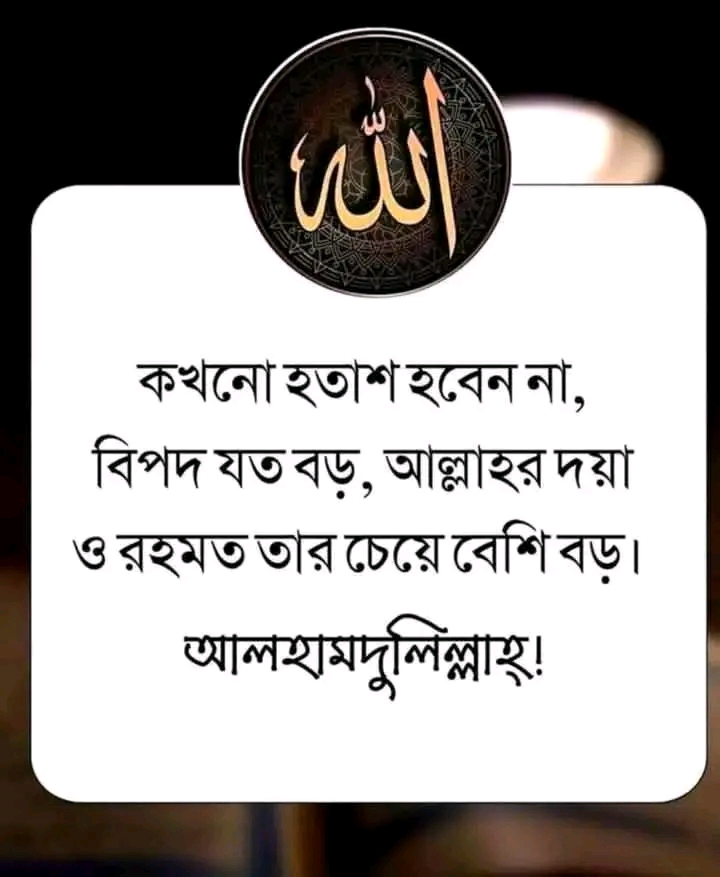 الله
কখনো হতাশ হবেন না,
বিপদ যত বড়, আল্লাহর দয়া
ও রহমত তার চেয়ে বেশি বড়।
আলহামদুলিল্লাহ্!